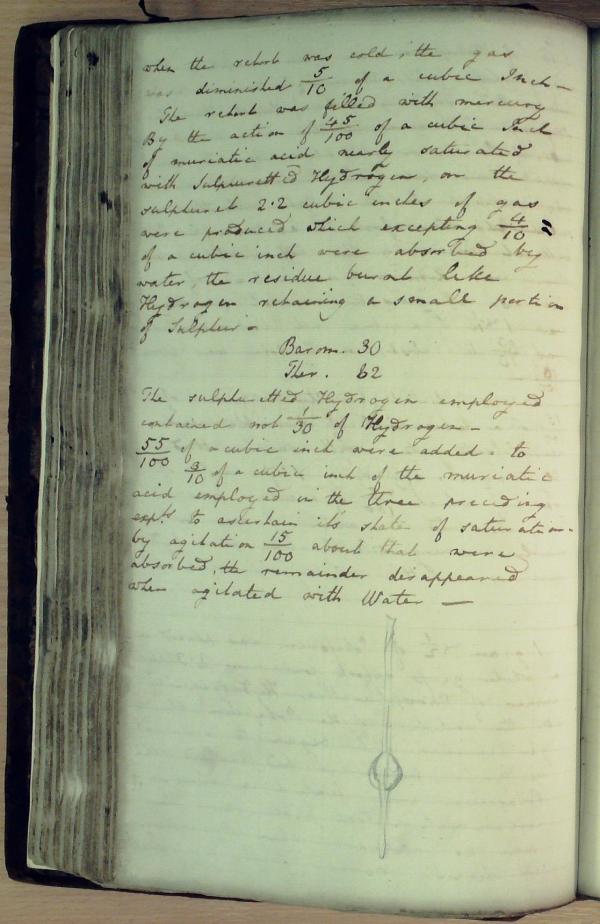 when the retort was cold, the gas
was diminished 5/10 of a cubic Inch –
The retort was filled with mercury
By the action of 45/100 of a cubic Inch
of muriatic acid nearly saturated
with Sulphuretted Hydrogen, on the
sulphuret 2.2 cubic inches of gas
were produced which excepting 4/10 =
of a cubic inch were absorbed by
water, the residue burnt like
Hydrogen retaining a small portion
of Sulphur –
Barom. 30
Ther. 62
The sulphuretted Hydrogen employed
contained not 1/30 of Hydrogen –
55/100 of a cubic inch were added to
3/10 of a cubic inch of the muriatic
acid employed in the three preceding
expts to ascertain its state of saturation –
by agitation 15/100 about that were
absorbed, the remainder disappeared
when agitated with Water —